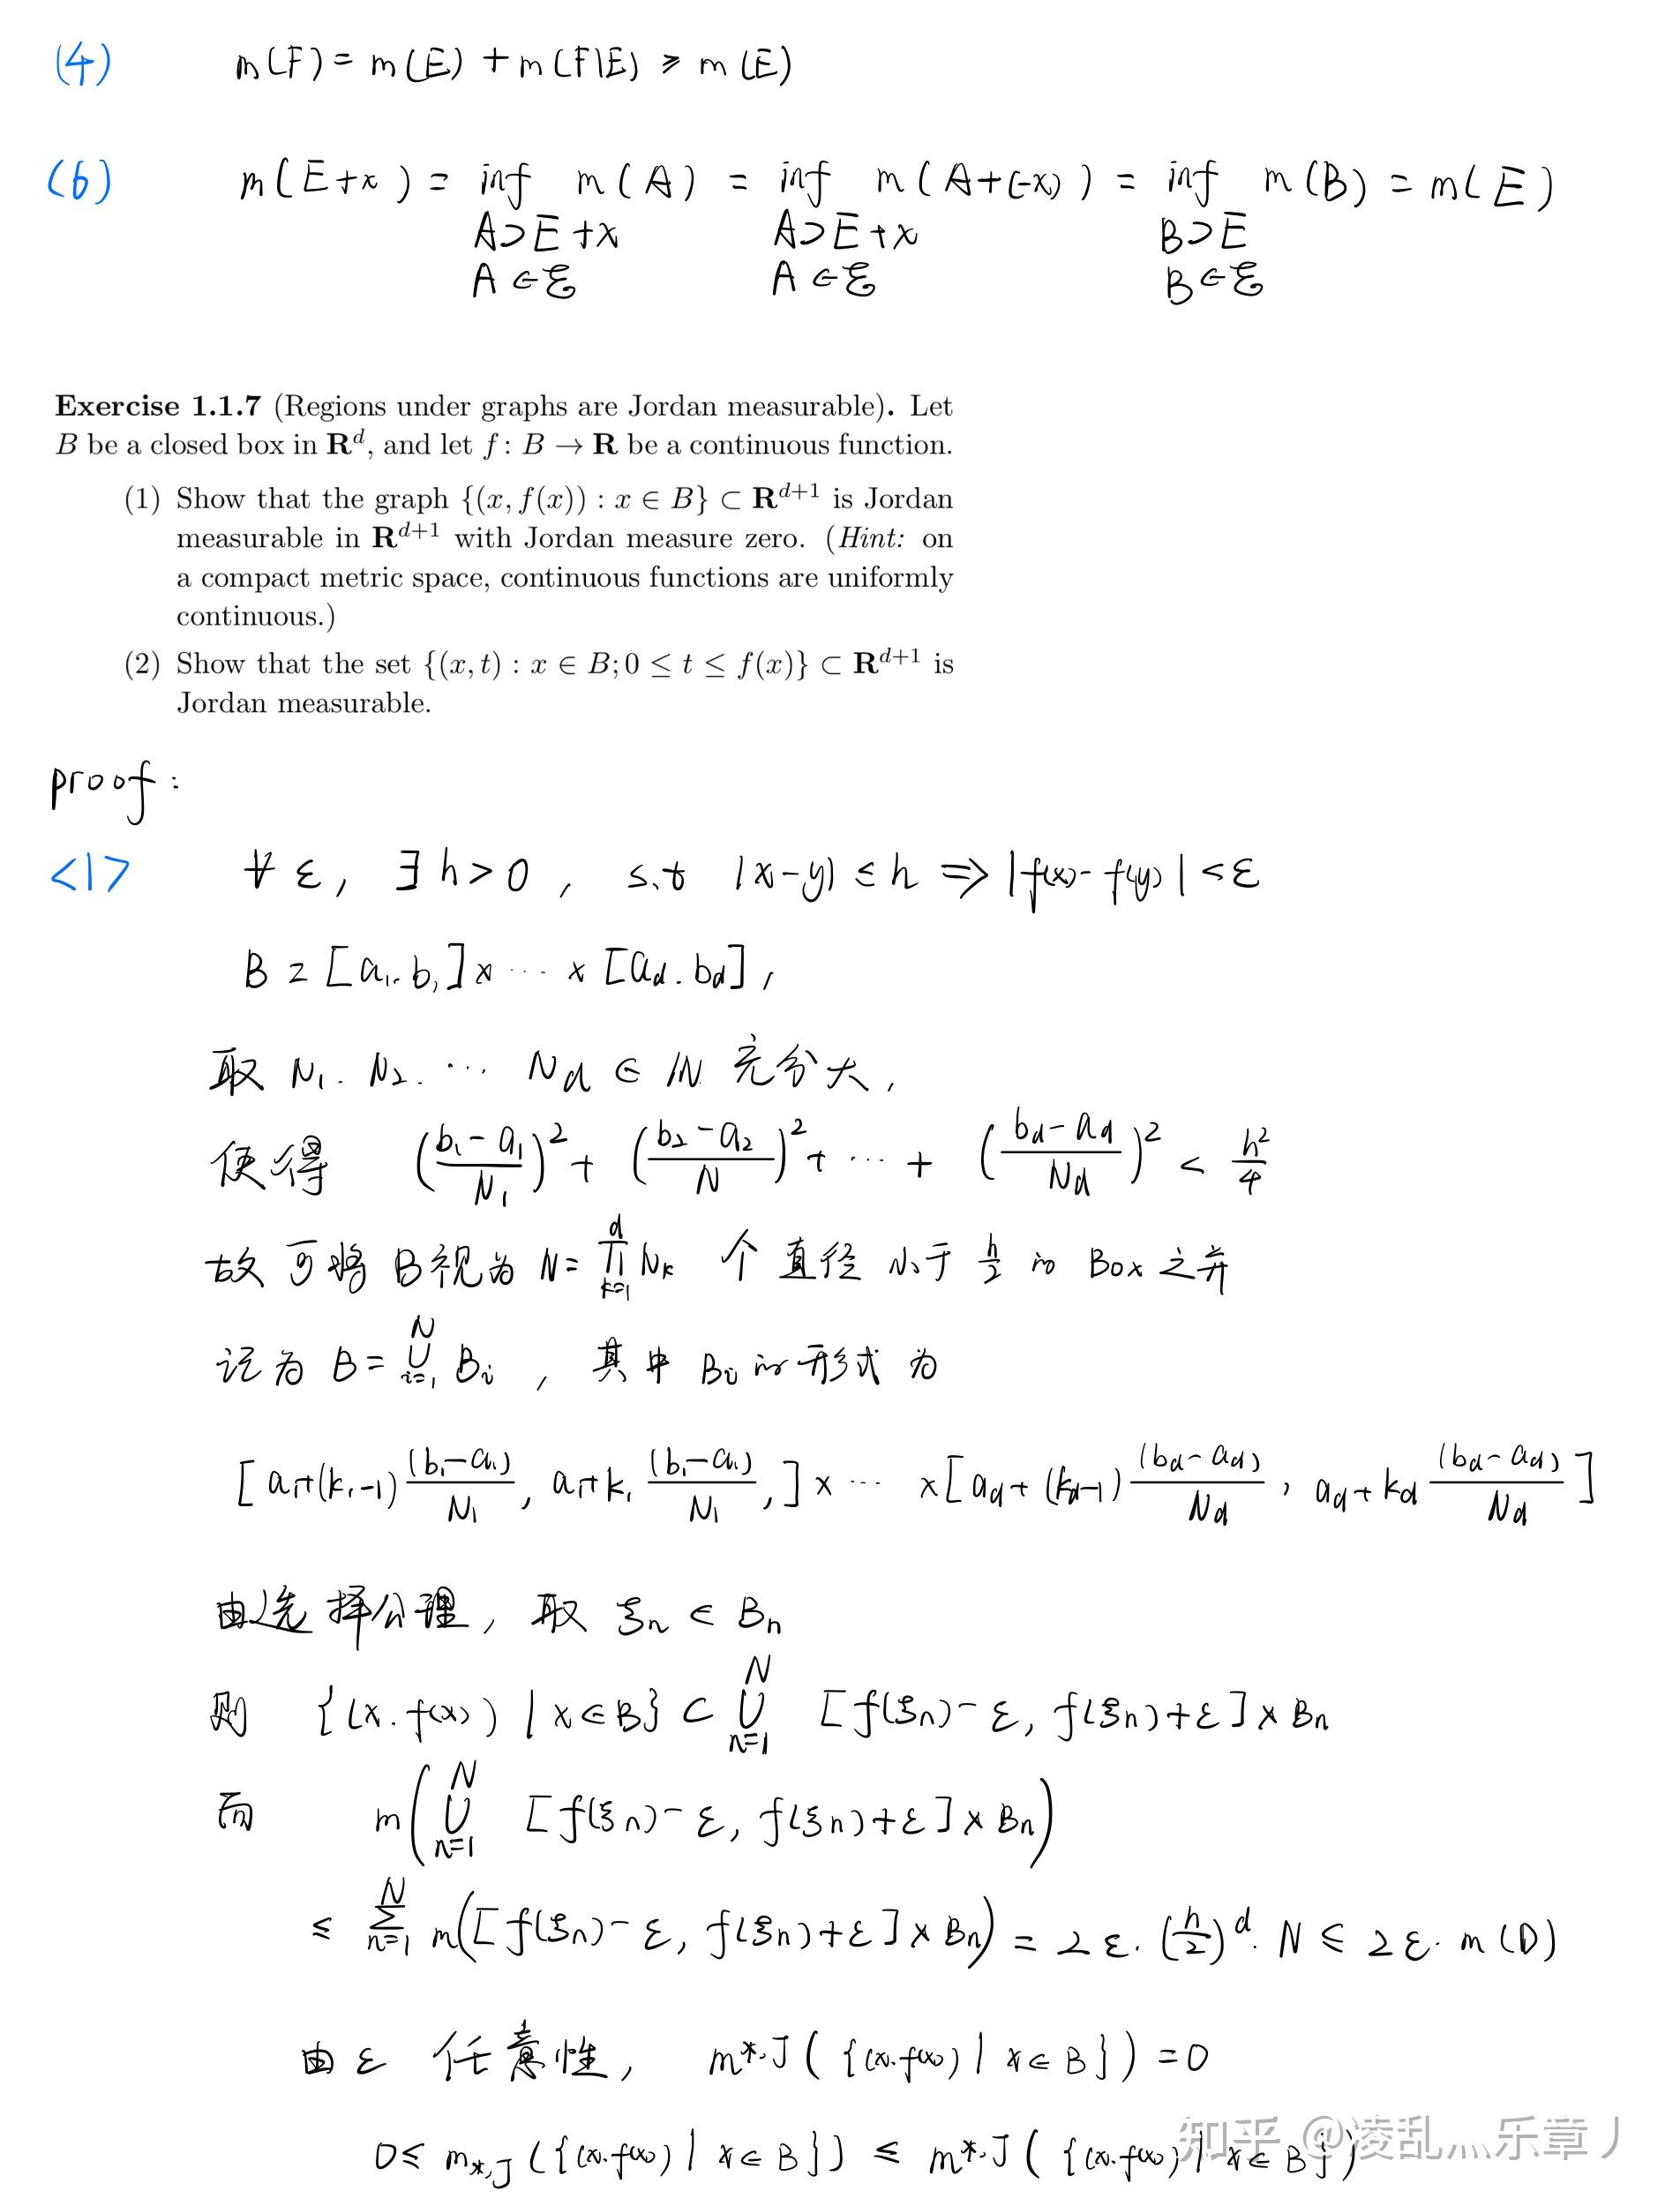 (4) m(F) = m(E) + m(F\E) ≥ m(E)
(6) m(E+x) = inf m(A) = inf m(A+(-x)) = inf m(B) = m(E)
A⊃E+x A⊃E+x B⊃E
A∈ℰ A∈ℰ B∈ℰ
Exercise 1.1.7 (Regions under graphs are Jordan measurable). Let
B be a closed box in R^d, and let f: B → R be a continuous function.
(1) Show that the graph {(x, f(x)) : x ∈ B} ⊂ R^{d+1} is Jordan
measurable in R^{d+1} with Jordan measure zero. (Hint: on
a compact metric space, continuous functions are uniformly
continuous.)
(2) Show that the set {(x, t) : x ∈ B; 0 ≤ t ≤ f(x)} ⊂ R^{d+1} is
Jordan measurable.
proof:
<1> ∀ ε, ∃ h>0, s.t |x-y| ≤ h ⇒ |f(x)-f(y)| < ε
B = [a₁.b₁]×···×[a_d.b_d],
取 N₁. N₂. ··· N_d ∈ ℕ 充分大,
使得 ((b₁-a₁)/N₁)² + ((b₂-a₂)/N)² + ··· + ((b_d-a_d)/N_d)² < h²/4
故可将B视为 N = ∏_{k=1}^{d} N_k 个直径小于 h/2 的 Box 之并
记为 B = ⋃_{i=1}^{N} B_i , 其中 B_i 的形式为
[a₁+(k₁-1)(b₁-a₁)/N₁, a₁+k₁(b₁-a₁)/N₁,]× ··· ×[a_d+(k_d-1)(b_d-a_d)/N_d, a_d+k_d(b_d-a_d)/N_d]
由选择公理, 取 ξ_n ∈ B_n
则 {(x.f(x)) | x∈B} ⊂ ⋃_{n=1}^{N} [f(ξ_n)-ε, f(ξ_n)+ε]×B_n
而 m(⋃_{n=1}^{N} [f(ξ_n)-ε, f(ξ_n)+ε]×B_n)
≤ ∑_{n=1}^{N} m([f(ξ_n)-ε, f(ξ_n)+ε]×B_n) = 2ε·(h/2)^d·N ≤ 2ε·m(D)
由ε 任意性, m^{*,J}({(x.f(x)) | x∈B}) = 0
0≤ m_{*,J}({(x.f(x)) | x∈B}) ≤ m^{*,J}({(x.f(x)) | x∈B})
知乎 @凌乱灬乐章丿